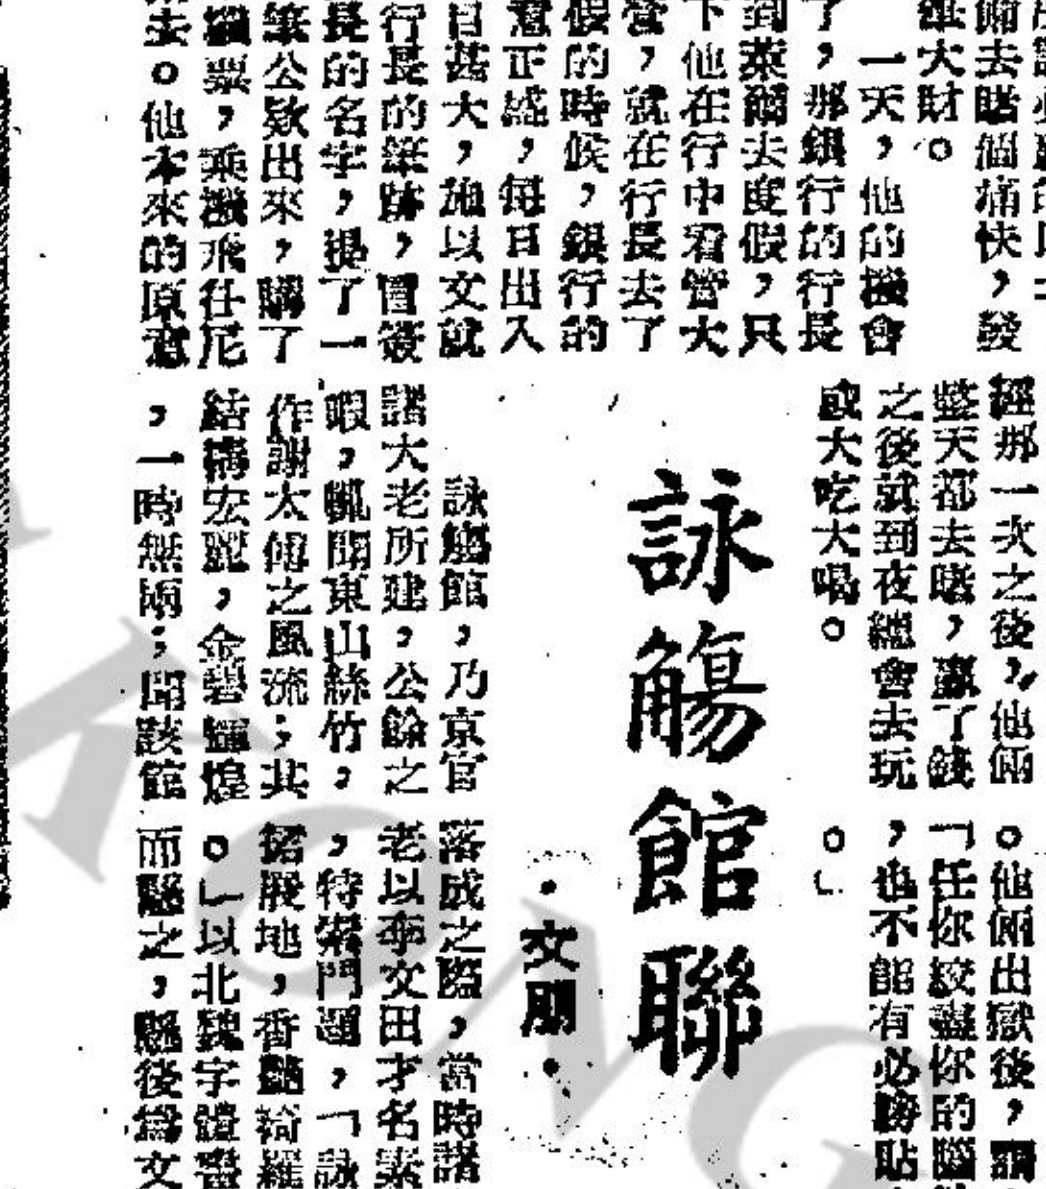 倆去賭個痛快，發
筆大財。
一天，他的機會
了，那銀行的行長
到萊爾去度假，只
下他在行中看管大
當，就在行長去了
假的時候，銀行的
意正盛，每日出入
目甚大，他以文就
行長的筆跡，冒簽
長的名字，提了一
筆公欵出來，購了
票，乘機飛往尼
去。他本來的原意
經那一次之後，他倆
整天都去賭，贏了錢
之後就到夜總會去玩
或大吃大喝。
。他倆出獄後，謂
「任你絞盡你的腦
，也不能有必勝貼
。」
詠觴館聯
·文朋·
詠觴館，乃京官
諸大老所建，公餘之
暇，輒開東山絲竹，
作謝太傅之風流；其
結構宏麗，金碧輝煌
，一時無兩；聞該館
落成之際，當時諸
老以李文田才名素
，特索門題，「詠
裙屐地，香艷綺羅
。」以北魏字體書
而懸之，懸後為文